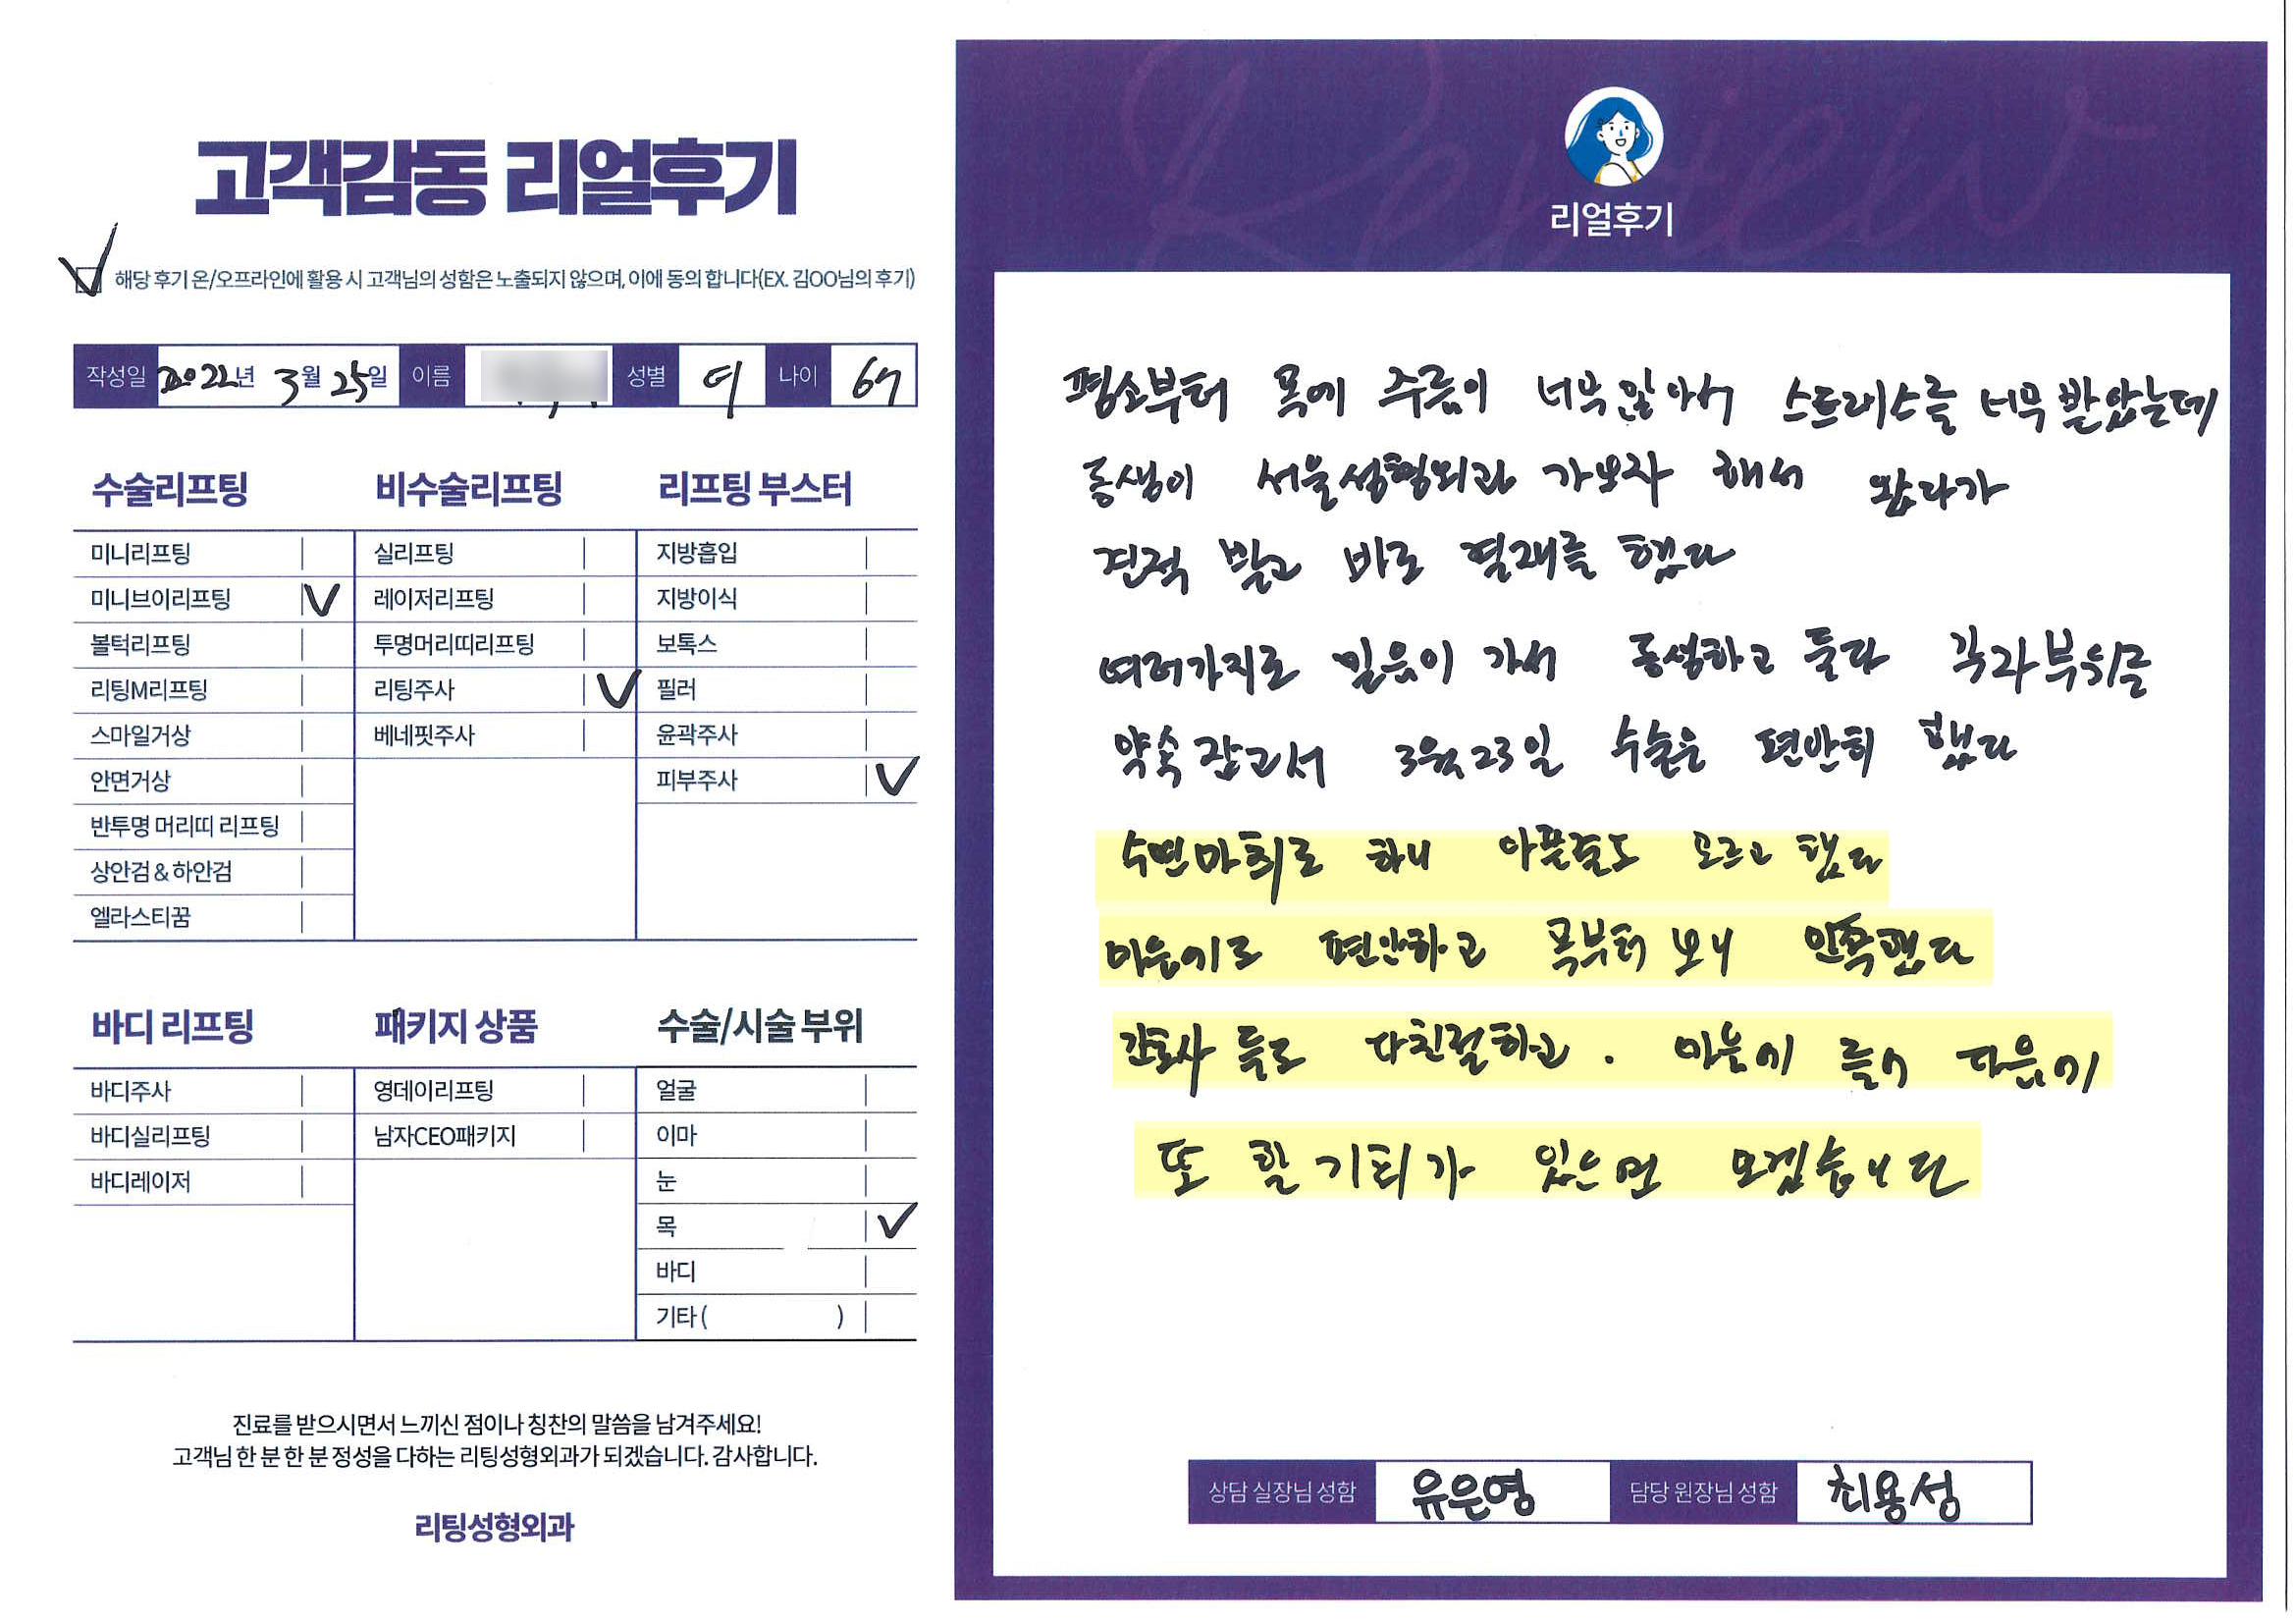 고객감동 리얼후기
해당 후기 온/오프라인에 활용 시 고객님의 성함은 노출되지 않으며, 이에 동의 합니다(EX. 김OO님의 후기)
작성일 2022년 3월 25일 이름 성별 여 나이 67
수술리프팅 비수술리프팅 리프팅 부스터
미니리프팅 실리프팅 지방흡입
미니브이리프팅 레이저리프팅 지방이식
볼턱리프팅 투명머리띠리프팅 보톡스
리팅M리프팅 리팅주사 필러
스마일거상 베네핏주사 윤곽주사
안면거상 피부주사
반투명 머리띠 리프팅
상안검 & 하안검
엘라스티꿈
바디 리프팅 패키지 상품 수술/시술 부위
바디주사 영데이리프팅 얼굴
바디실리프팅 남자CEO패키지 이마
바디레이저 눈
목
바디
기타 ( )
진료를 받으시면서 느끼신 점이나 칭찬의 말씀을 남겨주세요!
고객님 한 분 한 분 정성을 다하는 리팅성형외과가 되겠습니다. 감사합니다.
리팅성형외과
Review
리얼후기
평소부터 목에 주름이 너무 많아서 스트레스를 너무 받았는데
동생이 서울성형외과 가보자 해서 왔다가
견적 받고 바로 결재를 했다
여러가지로 믿음이 가서 동생하고 둘다 각자부위를
약속잡고서 3월23일 수술은 편안히 했다
수면마취로 하니 아픈줄도 모르고 했다
마음이로 편안하고 목부터 보니 만족했다
간호사 들도 다친절하고. 마음이 들어 다음에
또 할 기회가 있으면 오겠습니다
상담 실장님 성함 유은영 담당 원장님 성함 최용성